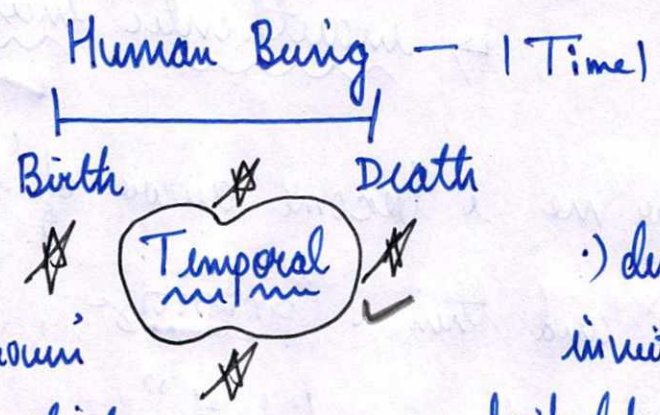 Human Being — | Time |
Birth Death
Temporal